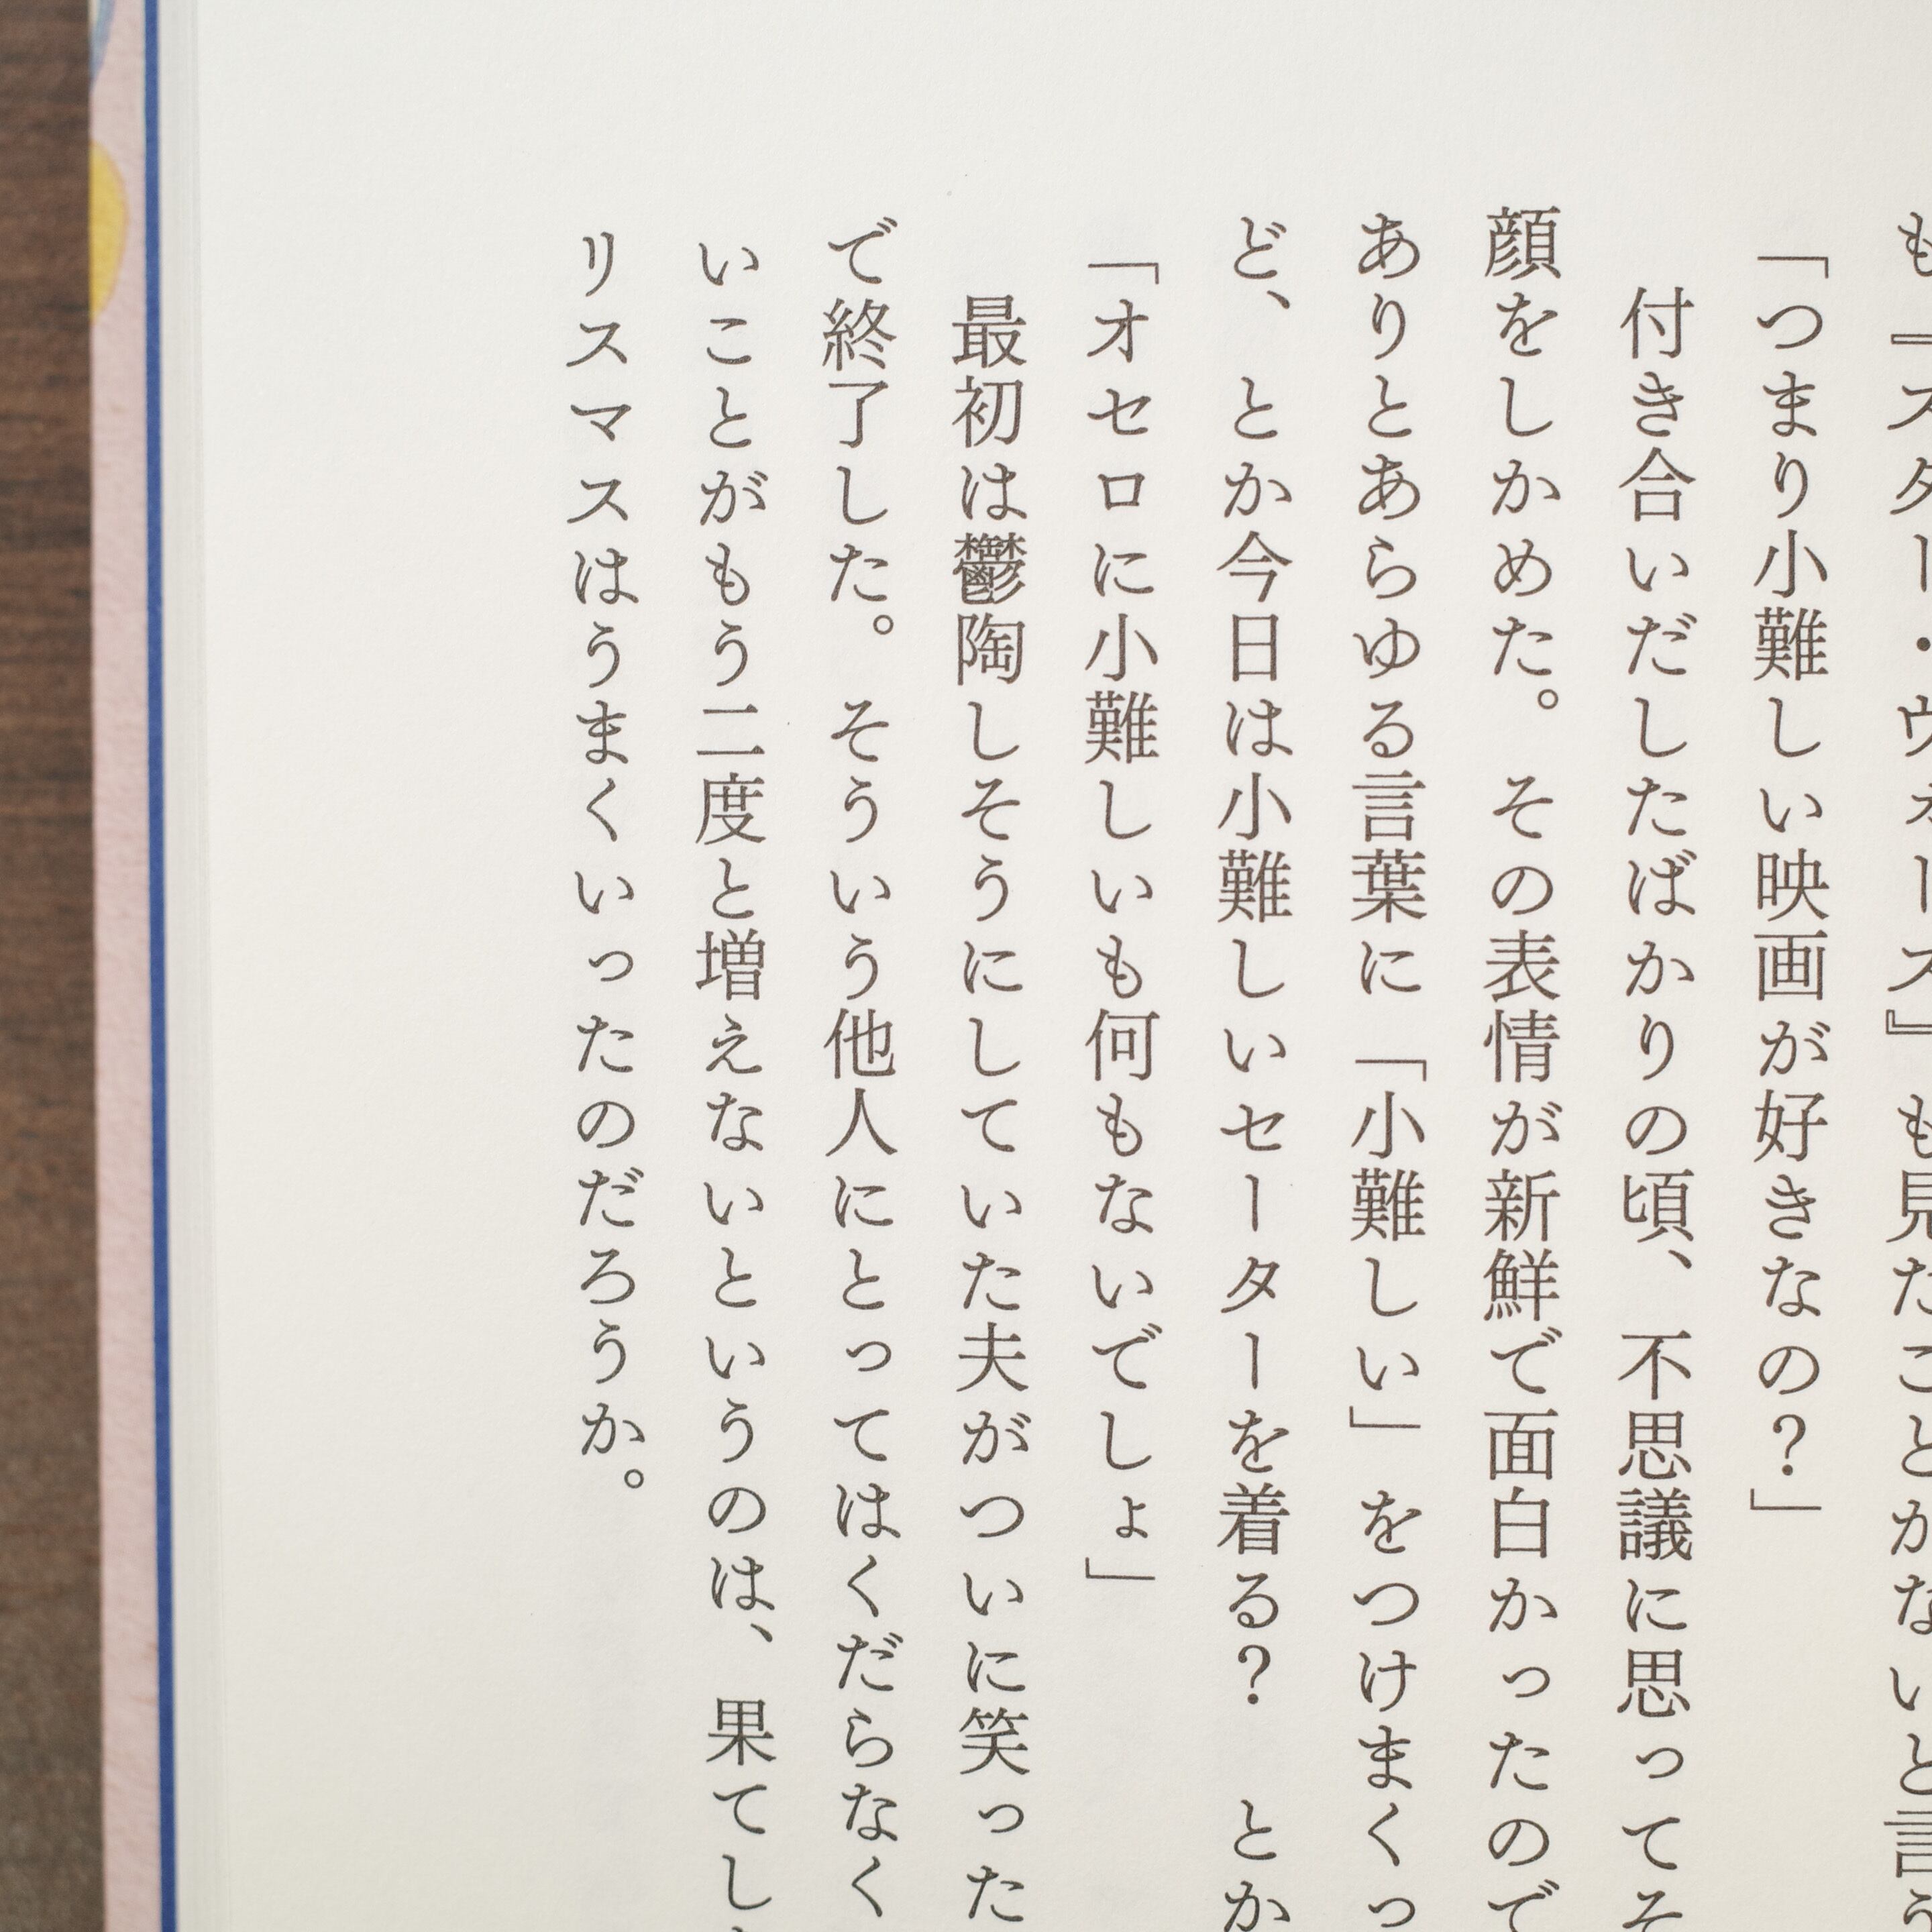 も『スター・ウォーズ』も見たことがないと言う
「つまり小難しい映画が好きなの？」
付き合いだしたばかりの頃、不思議に思ってそ
顔をしかめた。その表情が新鮮で面白かったので
ありとあらゆる言葉に「小難しい」をつけまくっ
ど、とか今日は小難しいセーターを着る？　とか
「オセロに小難しいも何もないでしょ」
最初は鬱陶しそうにしていた夫がついに笑った
で終了した。そういう他人にとってはくだらなく
いことがもう二度と増えないというのは、果てし
リスマスはうまくいったのだろうか。